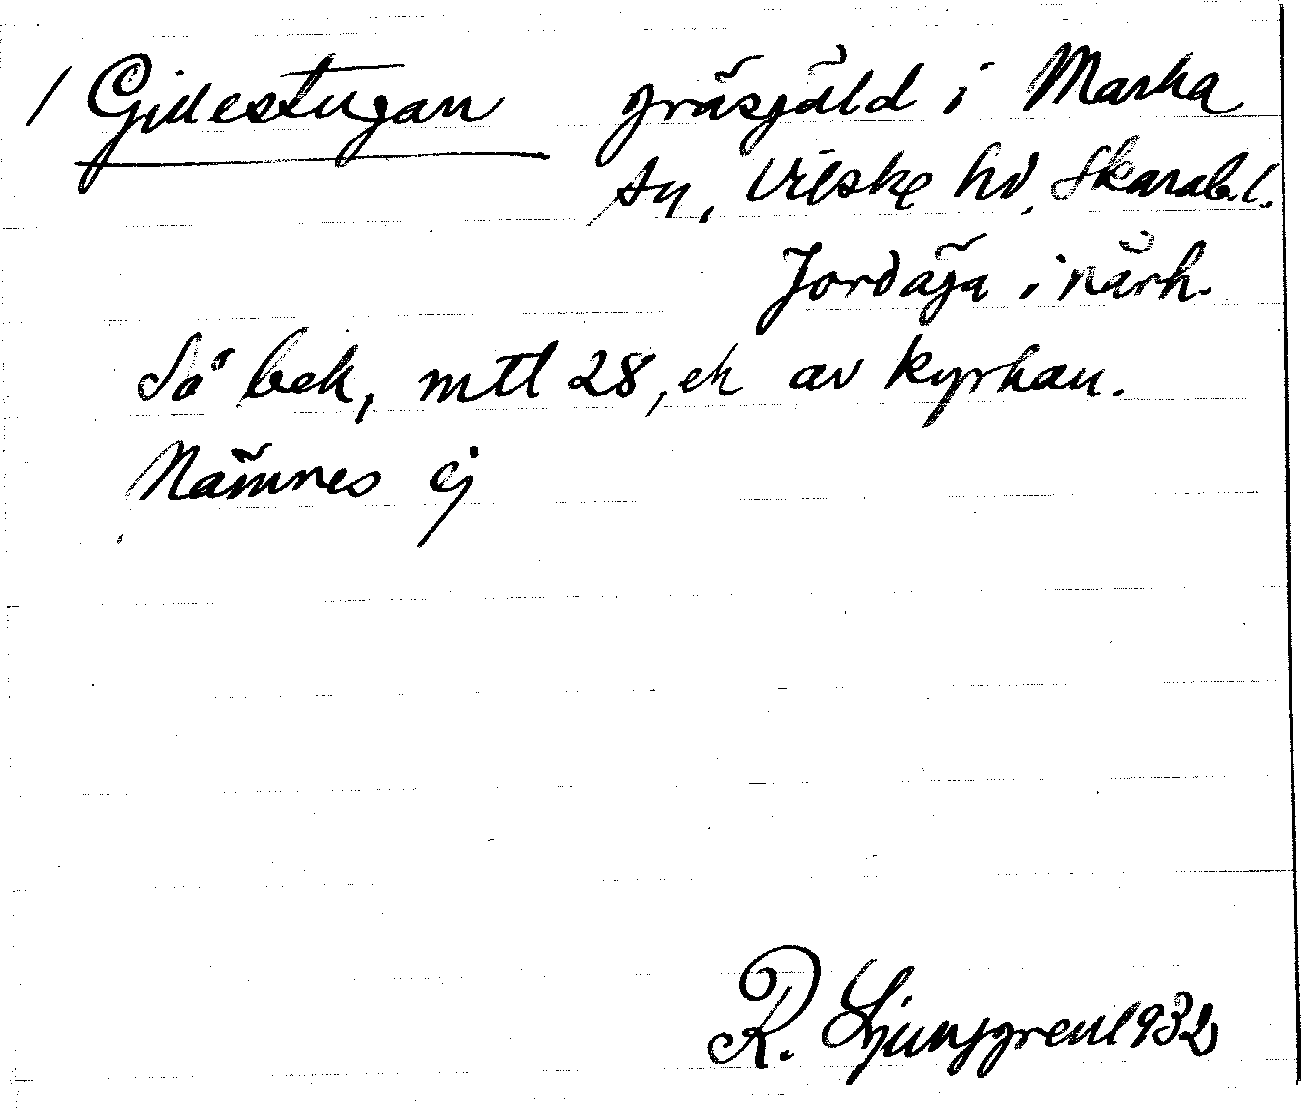 / Gillestugan gräsgäld i Marka
sn, Vilske hd, Skarab.l.
Jordäga i närh.
Så bek, mtl 28, ek av kyrkan.
Nämnes ej
R. Ljunggren 1932